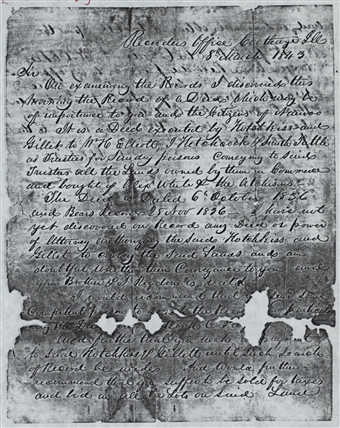 Recorders Office Carthage Ill
8th March 1843
Sir
On examining the Records I discovered this
morning the Record of a Deed which may be
of importance to you and the Citizens of Nauvoo
It is a Deed executed by Hotchkiss and
Gillet to Wm H Elliott, J Hotchkiss & Smith Tuttle
as Trustees for Sundry persons Conveying to Said
Trustees all the Lands owned by them in Commerce
and bought of Alex White & the Atchisons
The Deed is Dated 6th October 1836
and Bears Record 25 Nov 1836 I have not
yet discovered on Record any Deed or power
of Attorney authorizing the Said Hotchkiss and
Gillet to convey the Said Lands and am
doubtful whether their Conveyance to you and
your Brother & S Rigdon is legal
I would recommend that
Competent persons to the
the
And further that you make payment
to Said Hotchkiss & Gillett until Such Search
of Record be made And would further
recommend that you suffer to be Sold for taxes
and bid in all the Lots on Said Land